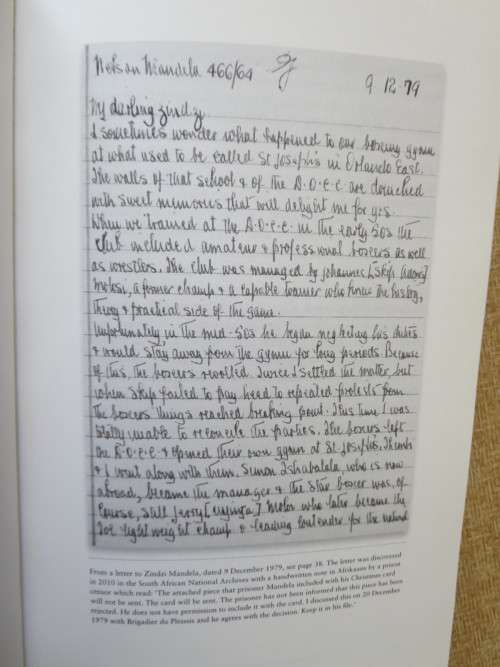 Nelson Mandela 466/64
9 12 79
My darling Zindzi,
I sometimes wonder what happened to our boxing gymn
at what used to be called St Joseph's in Orlando East.
The walls of that school & of the D.O.C.C are drenched
with sweet memories that will delight me for yrs.
When we trained at the D.O.C.C in the early 50s the
club included amateur & professional boxers as well
as wrestlers. The club was managed by Johannes (Skip
Molosi, a former champ & a capable trainer who knew the history,
theory & practical side of the game.
Unfortunately in the mid-50s he began neglecting his duties
& would stay away from the gymn for long periods Because
of this, the boxers revolted. Twice I settled the matter, but
when Skip failed to pay heed to repeated protests from
the boxers things reached breaking point. This time I was
totally unable to reconcile the parties. The boxers left
the D.O.C.C & opened their own gymn at St Joseph's.
& I went along with them. Simon Tshabalala, who is now
abroad, became the manager & the star boxer was, of
course, still Moloi who later became the
light weight champ & leading contender for the national
From a letter to Zindzi Mandela, dated 9 December 1979, see page 38. The letter was discovered
in 2010 in the South African National Archives with a handwritten note in Afrikaans by a prison
censor which read: 'The attached piece that prisoner Mandela included with his Christmas card
will not be sent. The card will be sent. The prisoner has not been informed that this piece has been
rejected. He does not have permission to include it with the card. I discussed this on 20 December
1979 with Brigadier du Plessis and he agrees with the decision. Keep it in his file.'